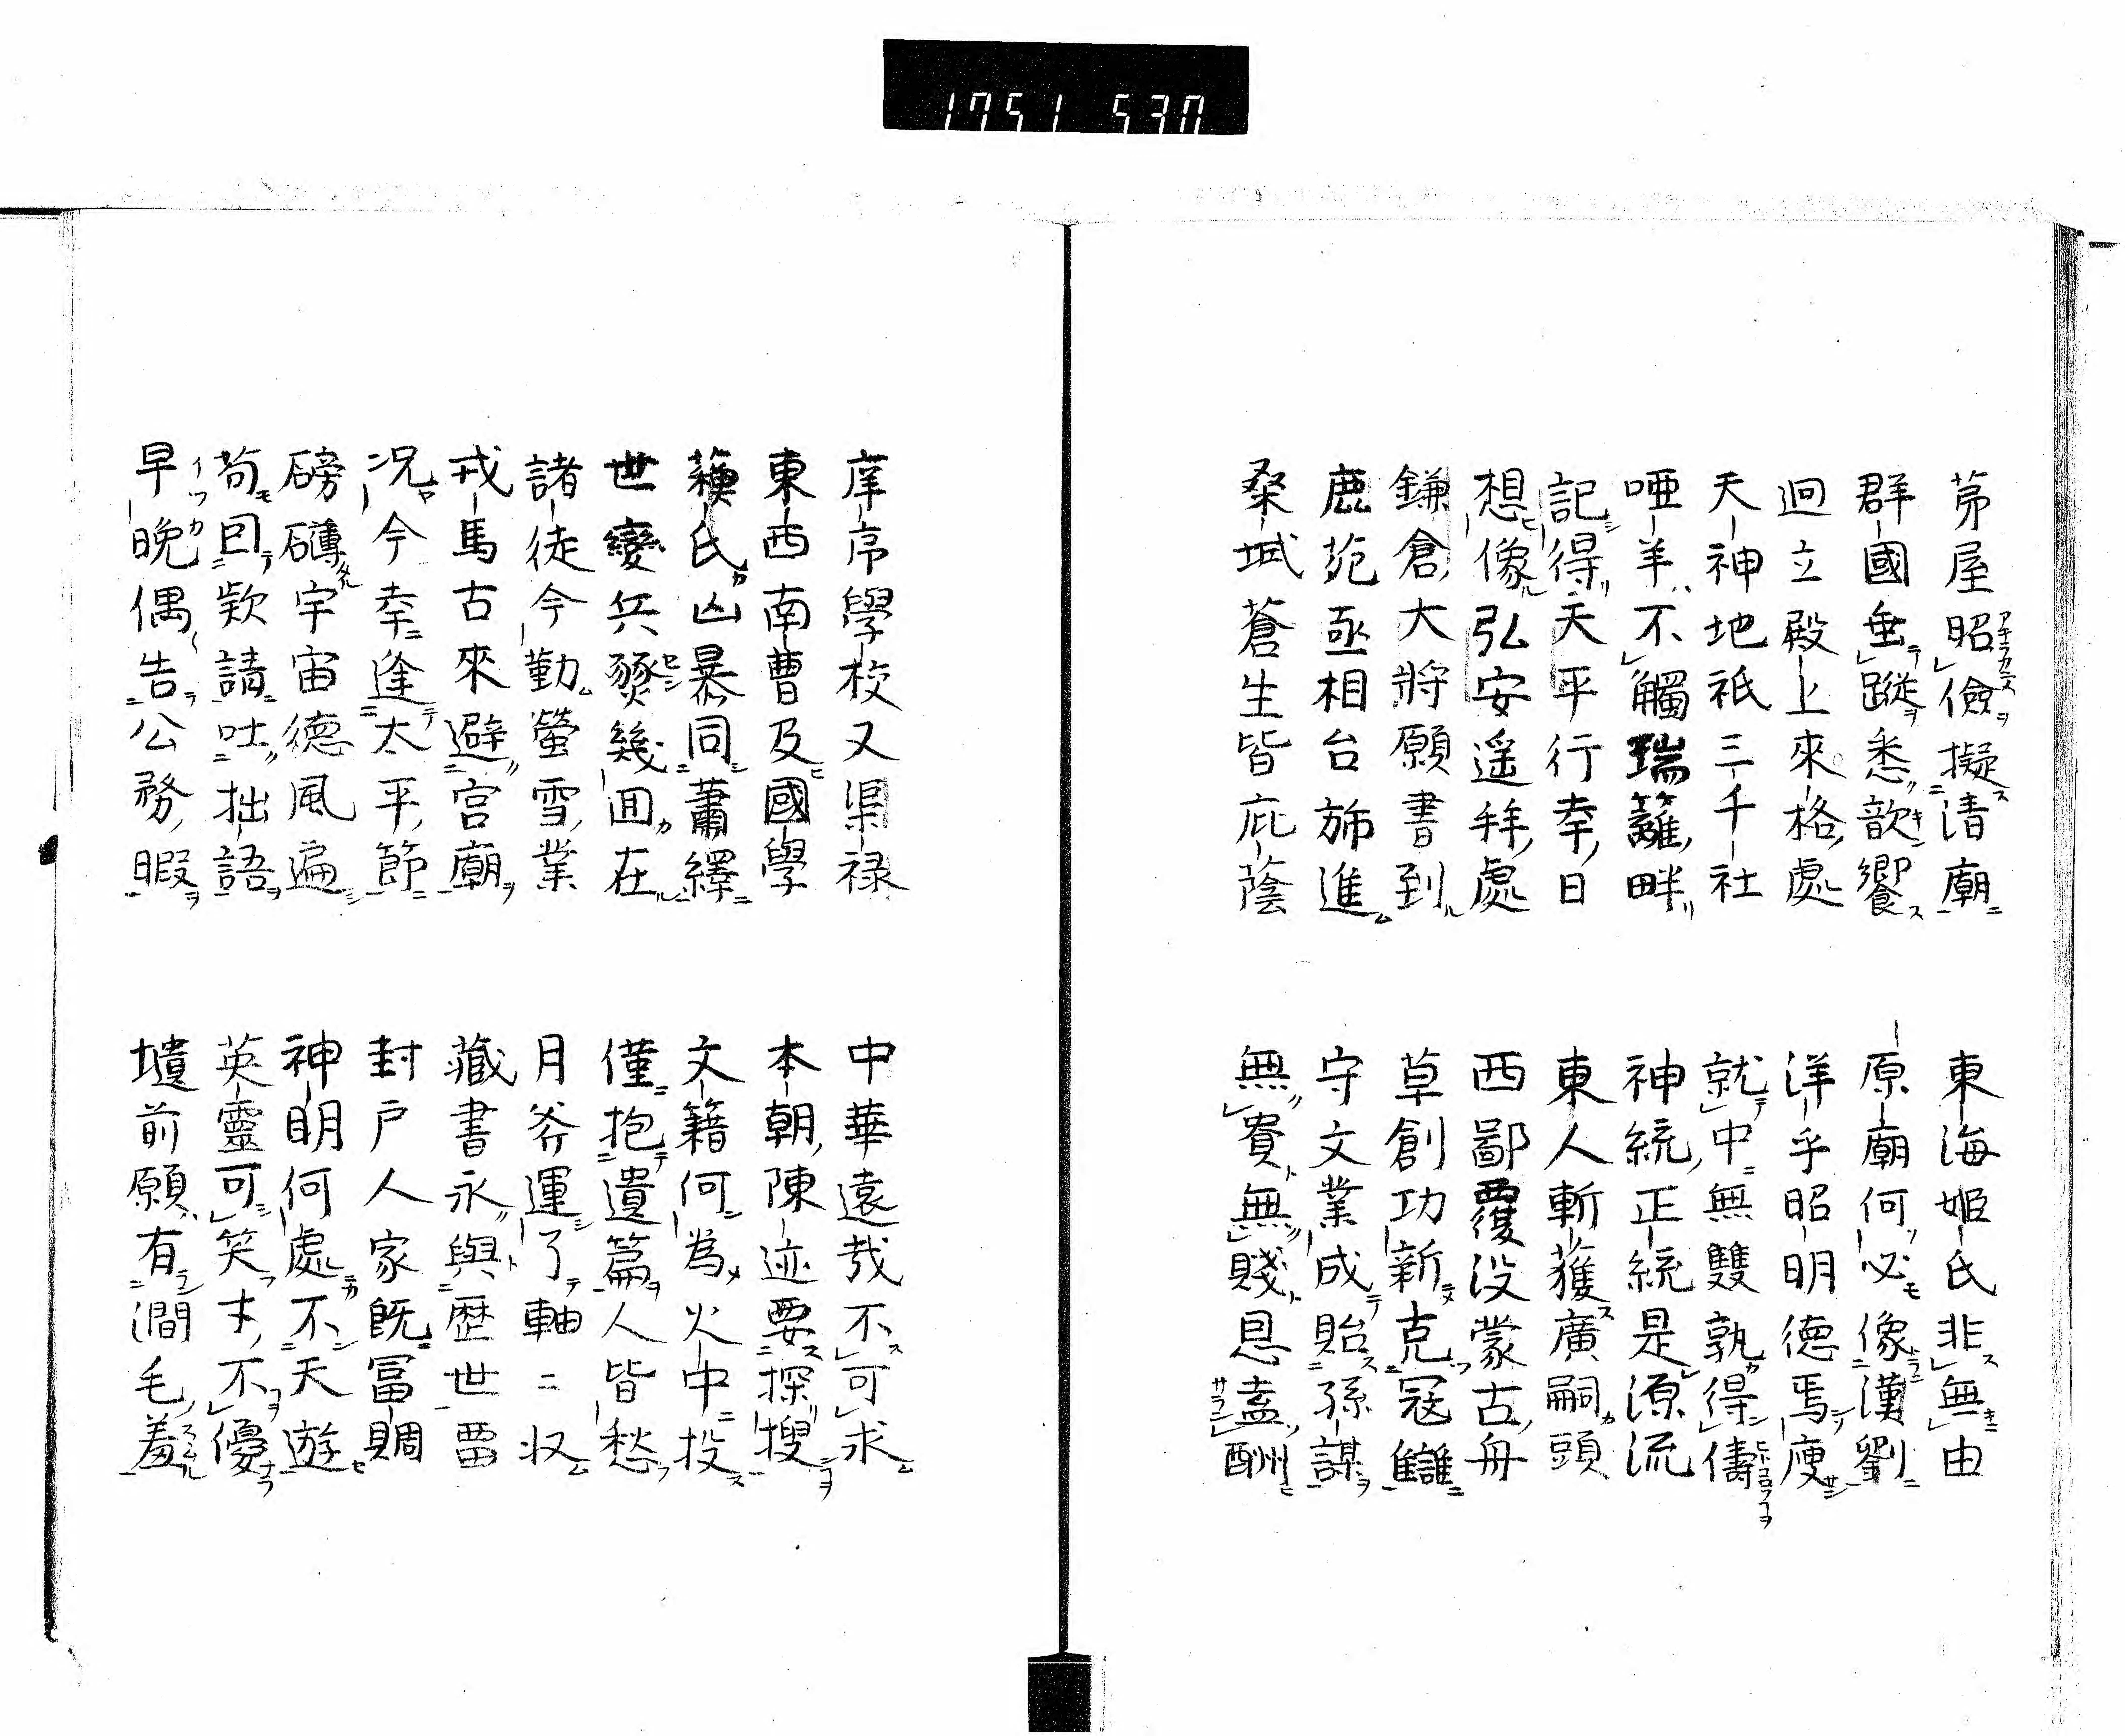 1751 530
茅屋昭儉擬清廟 東海姬氏非無由
群國垂蹤悉歆饗 原廟何必像漢劉
迥立殿上來格處 洋乎昭明德焉廋
天神地祇三千社 就中無雙孰得儔
啞羊不觸瑞籬畔 神統正統是源流
記得天平行幸日 東人斬獲廣嗣頭
想像弘安遥拜處 西鄙覆没蒙古舟
鎌倉大將願書到 草創功新克冦讎
鹿苑亟相台斾進 守文業成貽孫謀
桑域蒼生皆庇蔭 無貴無賤恩盍酬
庠序學校又渠禄 中華遠哉不可求
東西南曹及國學 本朝陳迹要探搜
蘓氏凶暴同蕭繹 文籍何為火中投
世變兵燹幾囬在 僅抱遺篇人皆愁
諸徒今勤螢雪業 月斧運了軸二収
戎馬古來避宮廟 藏書永與歷世畱
况今幸逢太平節 封户人家旣冨賙
磅礴宇宙德風遍 神明何處不天遊
苟囘欵請吐拙語 英靈可笑才不優
早晚偶告公務暇 壝前願有澗毛羞